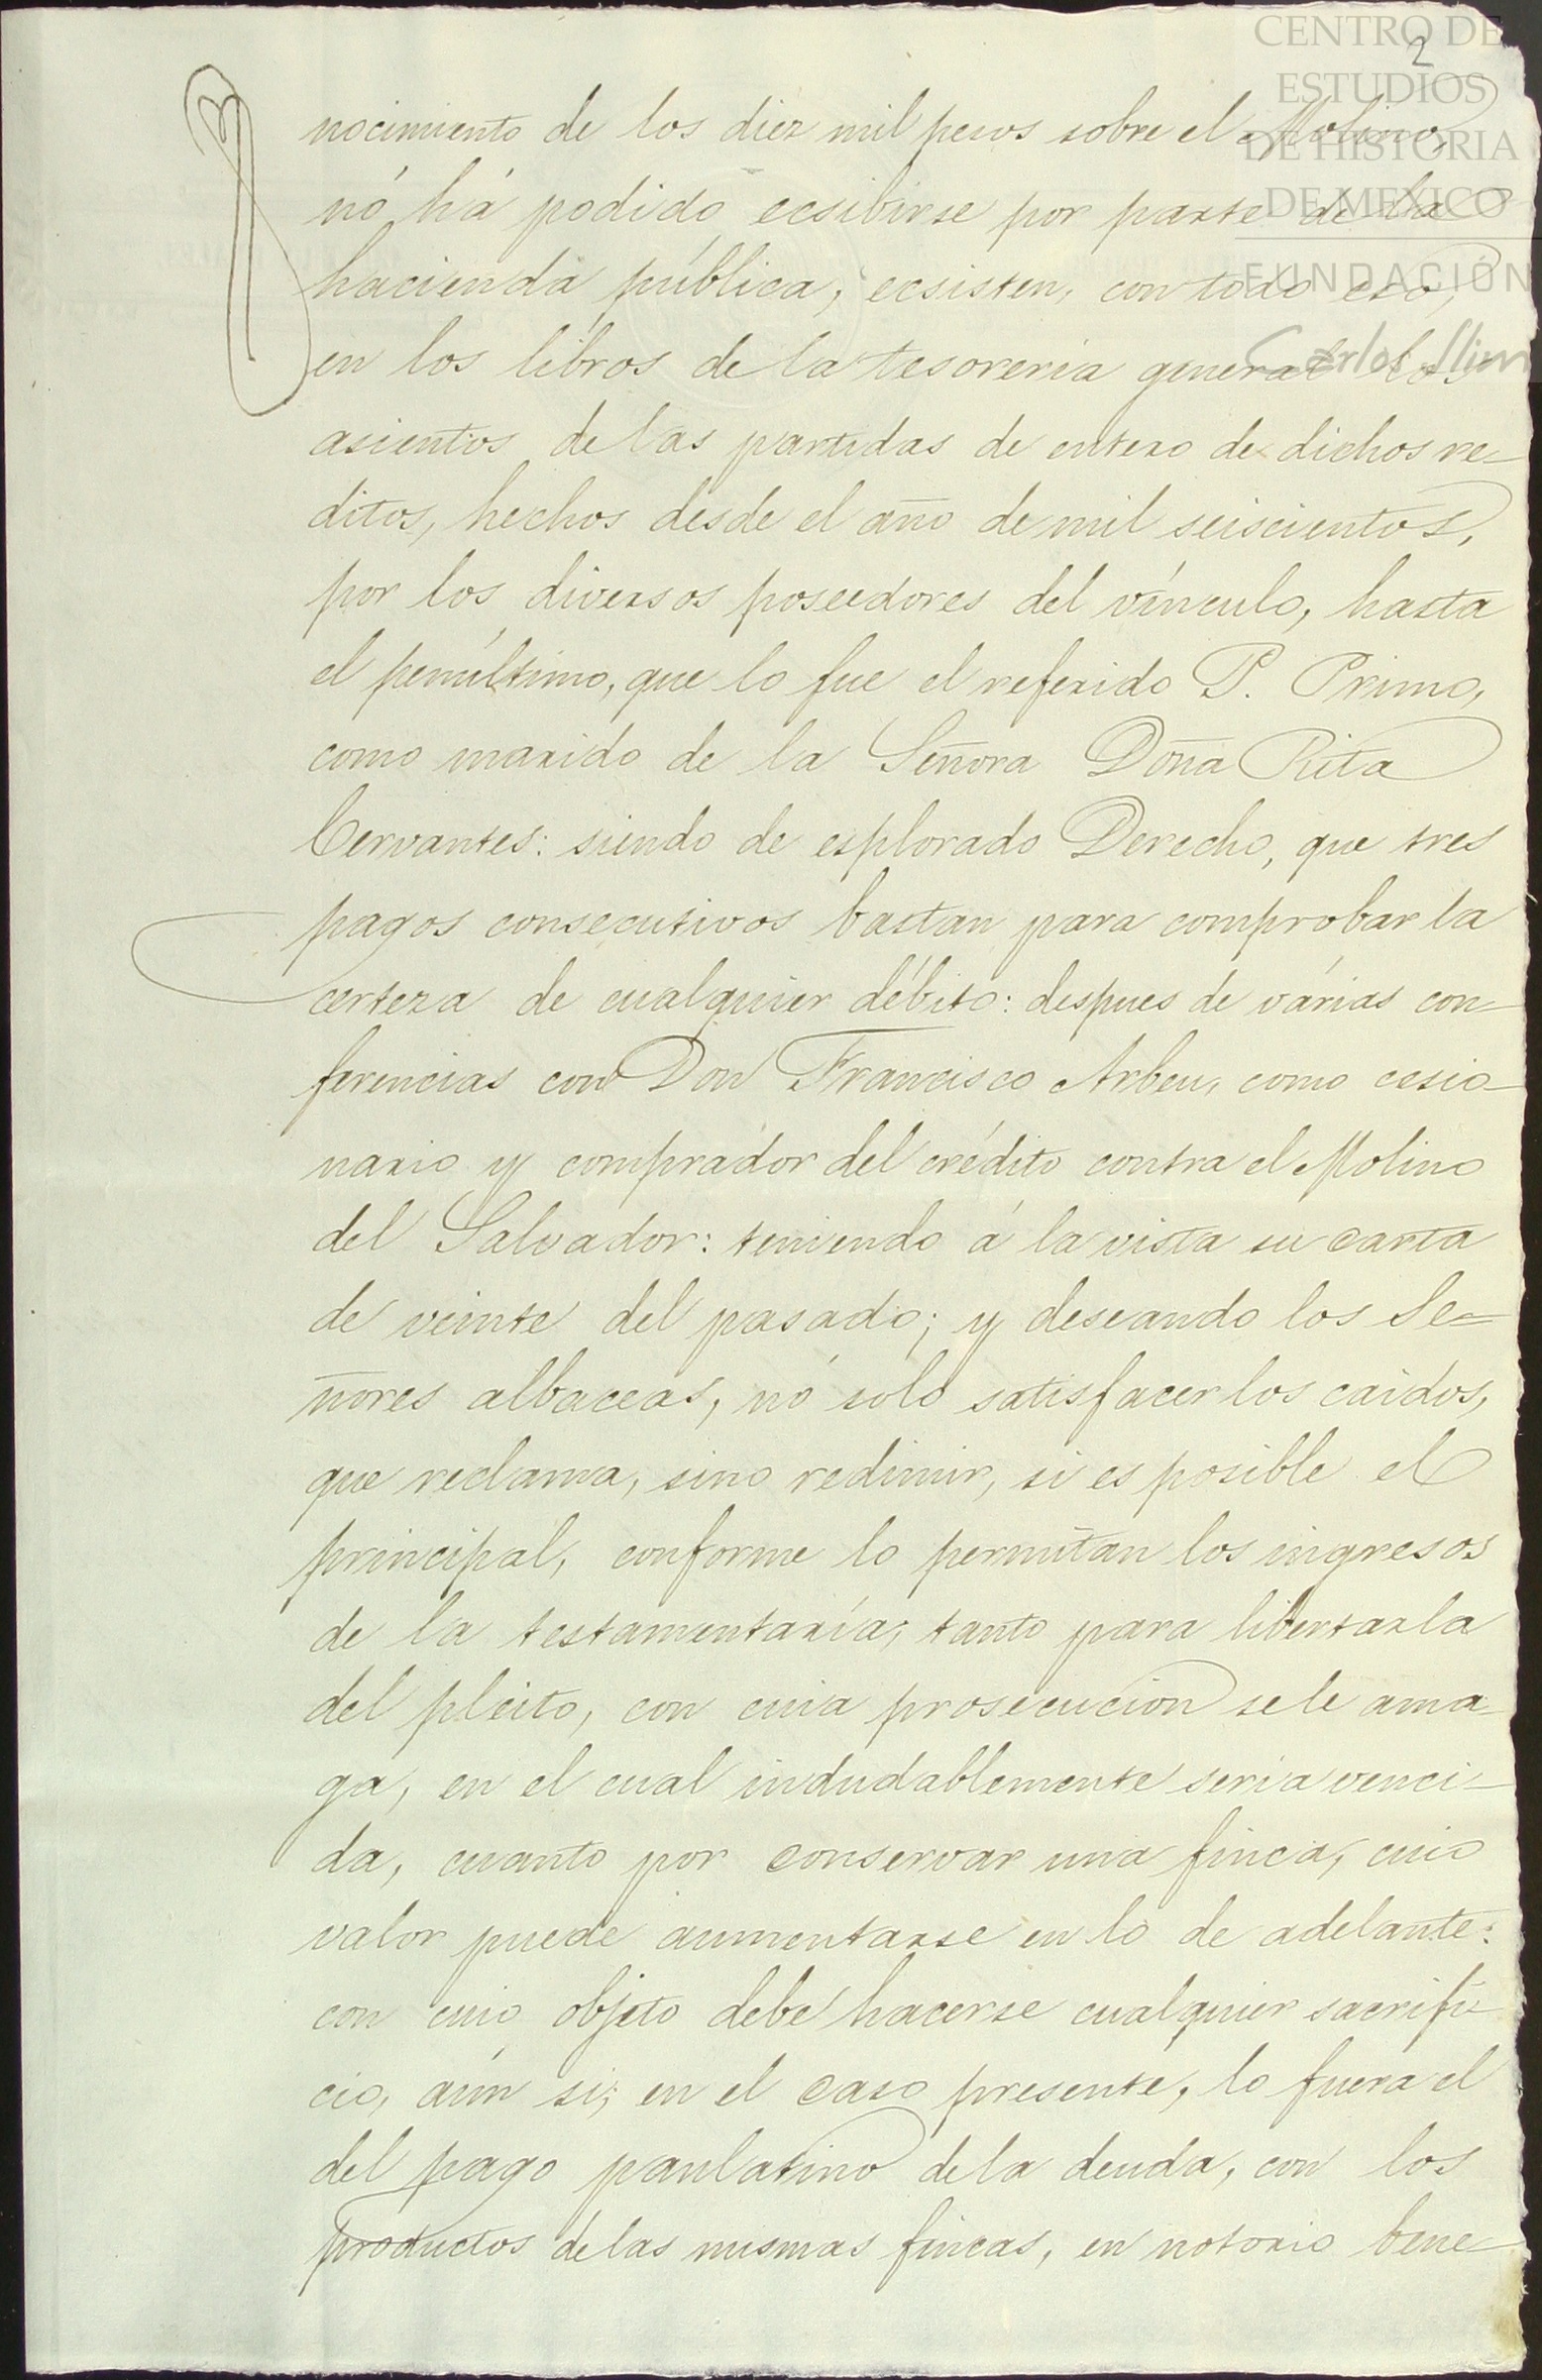 CENTRO DE
ESTUDIOS
DE HISTORIA
DE MEXICO
FUNDACIÓN
Carlos Slim
2
nocimiento de los diez mil pesos sobre el Molino,
nó há podido ecsibirse por parte de la
hacienda pública; ecsisten, con todo eso,
en los libros de la tesorería general los
asientos de las partidas de entero de dichos re-
ditos, hechos desde el año de mil seiscientos,
por los diversos poseedores del vínculo, hasta
el penúltimo, que lo fue el referido P. Primo,
como marido de la Señora Doña Rita
Cervantes: siendo de esplorado Derecho, que tres
pagos consecutivos bastan para comprobar la
certeza de cualquier débito: despues de várias con-
ferencias con Don Francisco Arbeu, como cesio-
nario y comprador del crédito contra el Molino
del Salvador: teniendo á la vista su carta
de veinte del pasado; y deseando los Se-
ñores albaceas, nó sólo satisfacer los caidos,
que reclama, sino redimir, si es posible el
principal, conforme lo permitan los ingresos
de la testamentaría; tanto para libertarla
del pleito, con cuia prosecucion se le ama-
ga, en el cual indudablemente sería venci-
da, cuanto por conservar una finca, cuio
valor puede aumentarse en lo de adelante:
con cuio objeto debe hacerse cualquier sacrifi-
cio, aún si; en el caso presente, lo fuera el
del pago paulatino de la deuda, con los
productos de las mismas fincas, en notorio bene-